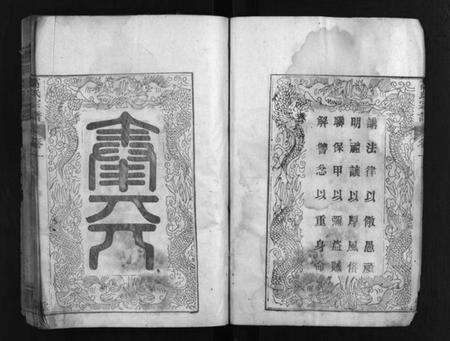 講法律以儆愚頑
明禮讓以厚風俗
聯保甲以彌盜賊
解讐忿以重身命